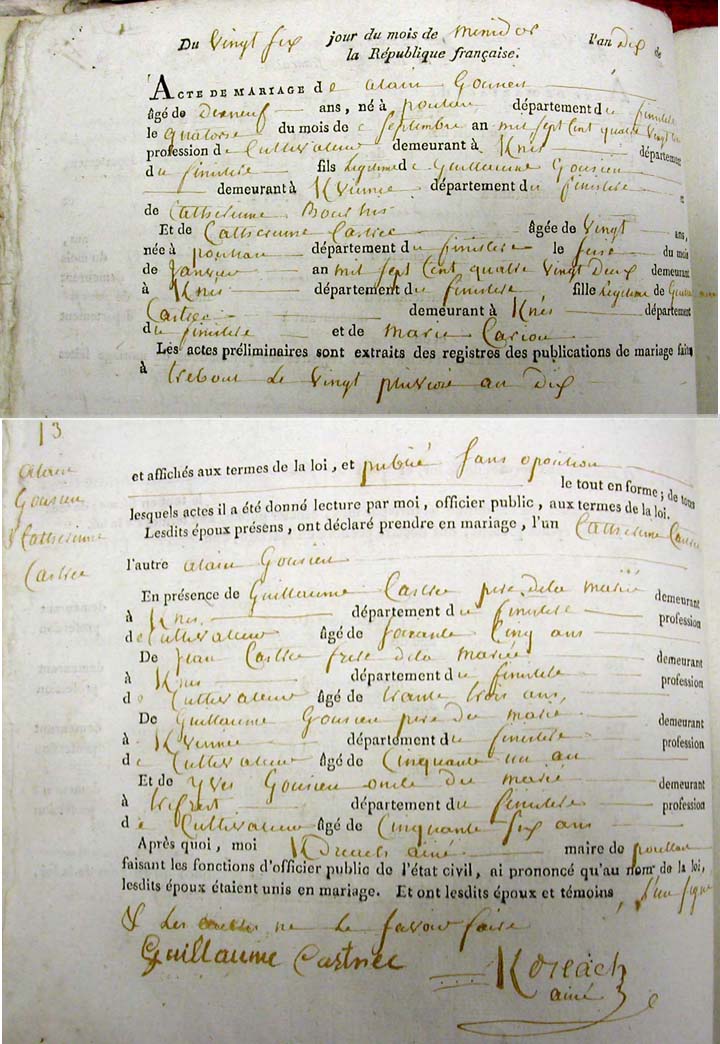 Du vingt six jour du mois de Messidor l'an Dix de
la République française.
ACTE DE MARIAGE de alain Gousien
âgé de Dixneuf ans, né à poullan département du finistere
le quatorse du mois de septembre an mil sept Cent quatre vingt
profession de Cultivateur demeurant à Knés département
du finistere fils Legitime de Guillaume Gousien
demeurant à Kvinnie département du finistere et
de Catherinne Bourhis
Et de Catherinne Castrec âgée de vingt ans,
née à poullan département du finistere le seise du mois
de Janvier an mil sept Cent quatre vingt Deux demeurant
à Knés département du finistere fille Legitime de
Castrec demeurant à Knés département
du finistere et de Marie Cariou
Les actes préliminaires sont extraits des registres des publications de mariage faits
à treboul Le vingt pluviose an Dix
13
alain
Gousien
& Catherinne
Castrec
et affichés aux termes de la loi, et publié sans oposition
le tout en forme; de tous
lesquels actes il a été donné lecture par moi, officier public, aux termes de la loi.
Lesdits époux présens, ont déclaré prendre en mariage, l'un Catherinne Castrec
l'autre alain Gousien
En présence de Guillaume Castrec pere dela mariée demeurant
à Knés département du finistere profession
de Cultivateur âgé de soixante Cinq ans
De Jean Castrec frere dela mariée demeurant
à Knés département du finistere profession
de Cultivateur âgé de trante trois ans,
De Guillaume Gousien pere du marié demeurant
à Kvinnie département du finistere profession
de Cultivateur âgé de Cinquante un an
Et de Yves Gousien oncle du marié demeurant
à département du finistere profession
de Cultivateur âgé de Cinquante six ans
Après quoi, moi Kdreach ainé maire de poullan
faisant les fonctions d'officier public de l'état civil, ai prononcé qu'au nom de la loi,
lesdits époux étaient unis en mariage. Et ont lesdits époux et témoins, l'un signé
& Les ne Le savoir faire
Guillaume Castrec
Kdreach
ainé